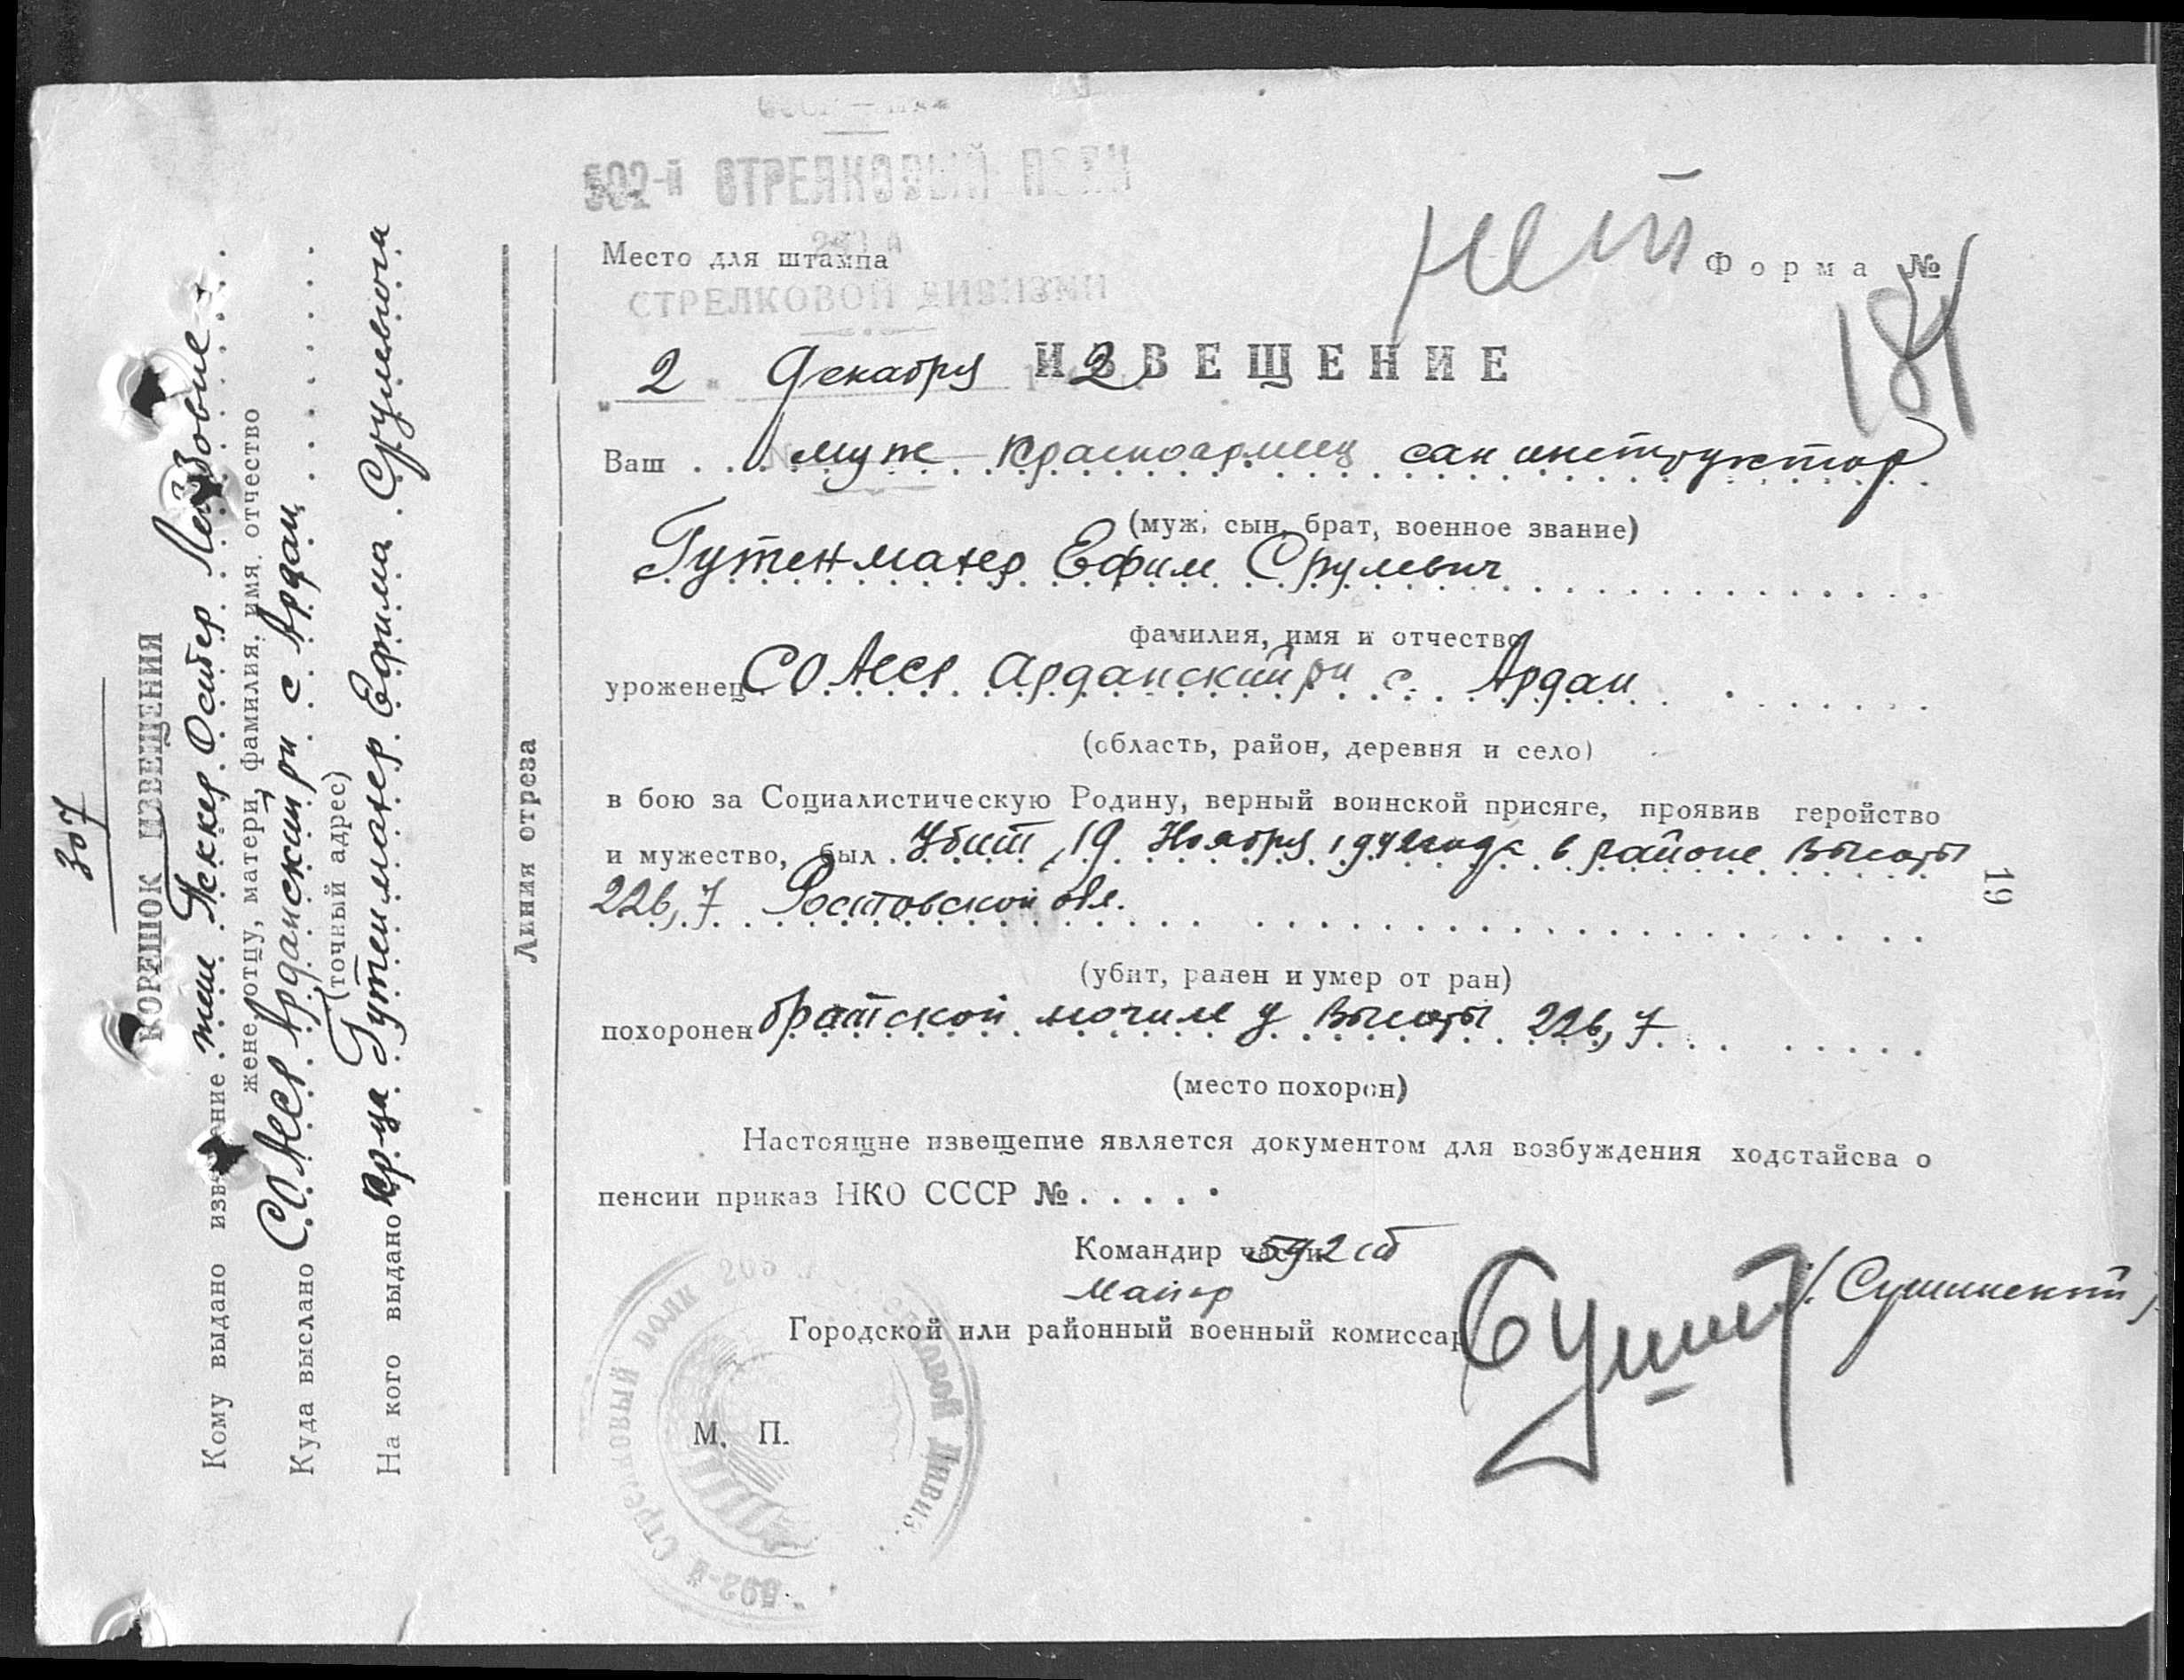 307
КОРЕШОК ИЗВЕЩЕНИЯ
Кому выдано извещение жене Пеккер Остер
жене, отцу, матери, фамилия, имя, отчество
Куда выслано СО АССР Арданский рн с Ардан
(точный адрес)
На кого выдано Кр-ца Гутенмахер Ефима Срулевича
Линия отреза
592-й СТРЕЛКОВЫЙ ПОЛК
Место для штампа
СТРЕЛКОВОЙ ДИВИЗИИ
нет
Форма №
184
ИЗВЕЩЕНИЕ
„2" Декабря 2
Ваш муж красноармеец сан инструктор
(муж, сын, брат, военное звание)
Гутенмахер Ефим Срулевич
фамилия, имя и отчество
уроженец СО АССР Арданский рн с. Ардан
(область, район, деревня и село)
в бою за Социалистическую Родину, верный воинской присяге, проявив геройство
и мужество, был Убит 19 Ноября года в районе Высоты
226,7 Ростовской обл.
19
(убит, ранен и умер от ран)
похоронен братской могиле у Высоты 226,7
(место похорон)
Настоящие извещение является документом для возбуждения ходстайсва о
пенсии приказ НКО СССР №
Командир части 592 сп
Майор
/Сушинский/
Городской или районный военный комиссар
М. П.
592-й Стрелковый полк Стрелковой Дивиз.